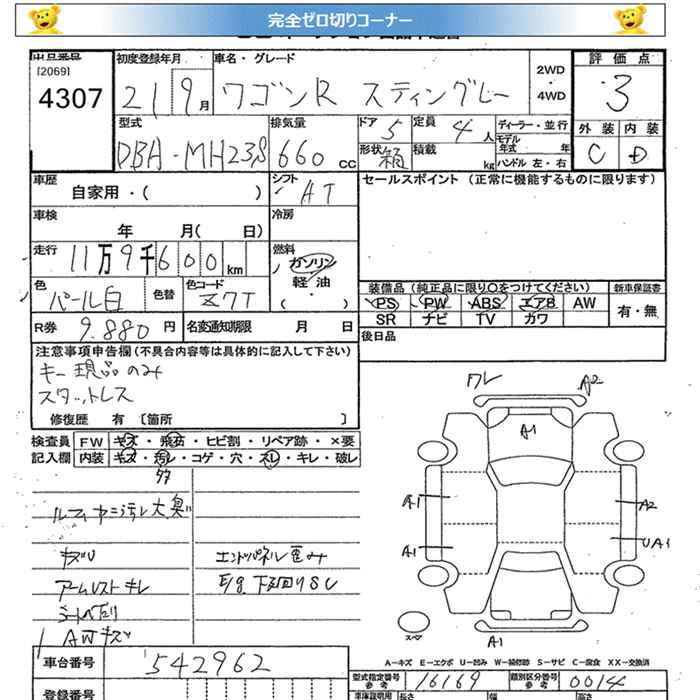 完全ゼロ切りコーナー
出品番号
[2069]
4307
初度登録年月
21 9月
車名・グレード
ワゴンR スティングレー
2WD
・
4WD
評価点
3
外装 内装
C D
型式
DBA-MH23S
排気量
660 CC
ドア 5
形状 箱
定員 4人
積載 kg
ディーラー・並行
モデル年式 年
ハンドル 左・右
車歴
自家用・( )
シフト
AT
セールスポイント (正常に機能するものに限ります)
車検
年 月( 日)
冷房
走行
11万9千600km
燃料
ガソリン
軽油
( ・ )
色
パール白
色替
色コード
Z7T
装備品 (純正品に限り○をつけてください)
PS PW ABS エアB AW
SR ナビ TV カワ
新車保証書
有・無
R券 9.880円
名変通知期限 月 日
後日品
注意事項申告欄 (不具合内容等は具体的に記入して下さい)
キー現品のみ
スタットレス
修復歴 有 〔箇所 〕
検査員 FW キズ・飛石・ヒビ割・リペア跡・×要
記入欄 内装 キズ・汚レ・コゲ・穴・スレ・キレ・破レ
ルーフィヤニ汚レ大 臭い
キズU
エンドパネル歪み
アームレストキレ
E/g下回りSU
AWキズ
ワレ
A2
A1
A1
A2
A1
UA1
スペア
A1
A-キズ E-エクボ U-凹み W-補修跡 S-サビ C-腐食 XX-交換済
車台番号
542962
型式指定番号
参考
16169
類別区分番号
参考
0014
登録番号
車庫証明用
参考
長さ
幅
高さ